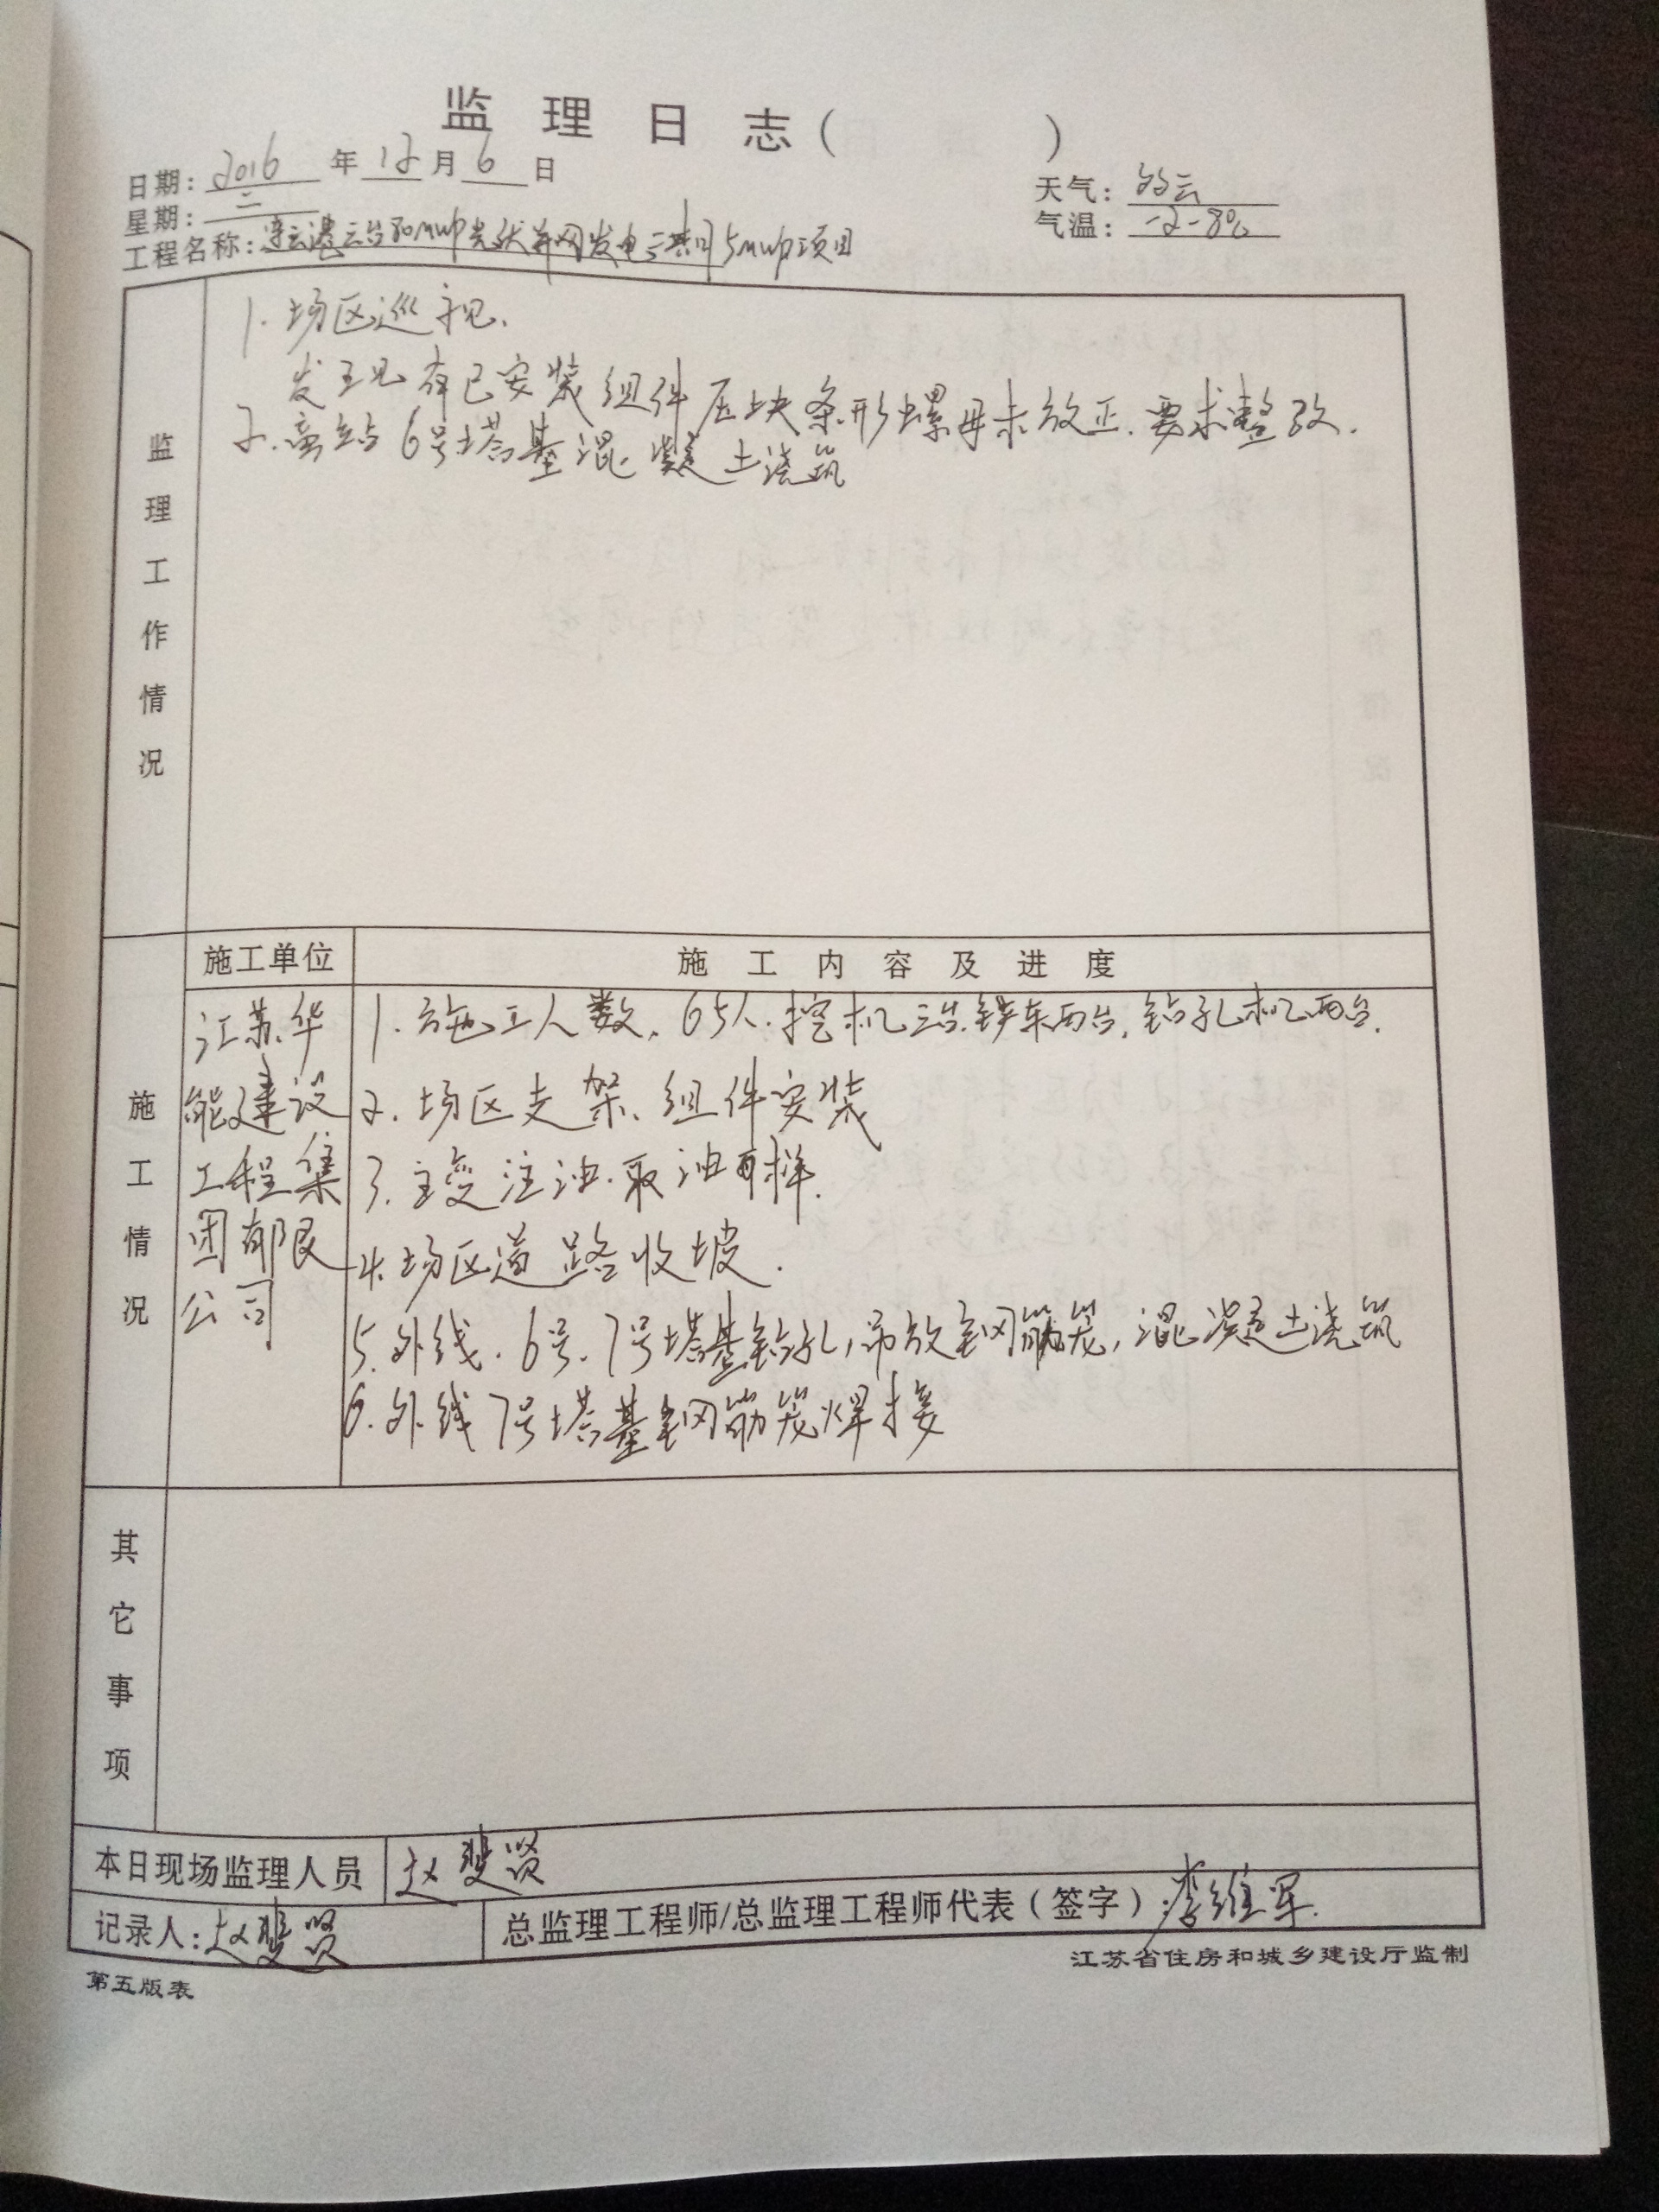 监理日志（ ）
日期：2016年12月6日
天气：多云
星期：二
气温：-2-8℃
工程名称：连云港云台80MWp光伏并网发电三期5MWp项目
监理工作情况
1.场区巡视、
发现有已安装组件压块条形螺母未放正.要求整改.
2.旁站6号塔基混凝土浇筑
施工单位
施工内容及进度
施工情况
江苏华
能建设
工程集
团有限
公司
1.施工人数、65人.挖机三台.铲车两台,钻孔机两台.
2.场区支架、组件安装
3.主变注油.取油样.
4.场区道路收坡.
5.外线.6号、7号塔基钻孔,吊放钢筋笼,混凝土浇筑
6.外线7号塔基钢筋笼焊接
其它事项
本日现场监理人员
赵斐贤
记录人：赵斐贤
总监理工程师/总监理工程师代表（签字）：李维军
第五版表
江苏省住房和城乡建设厅监制